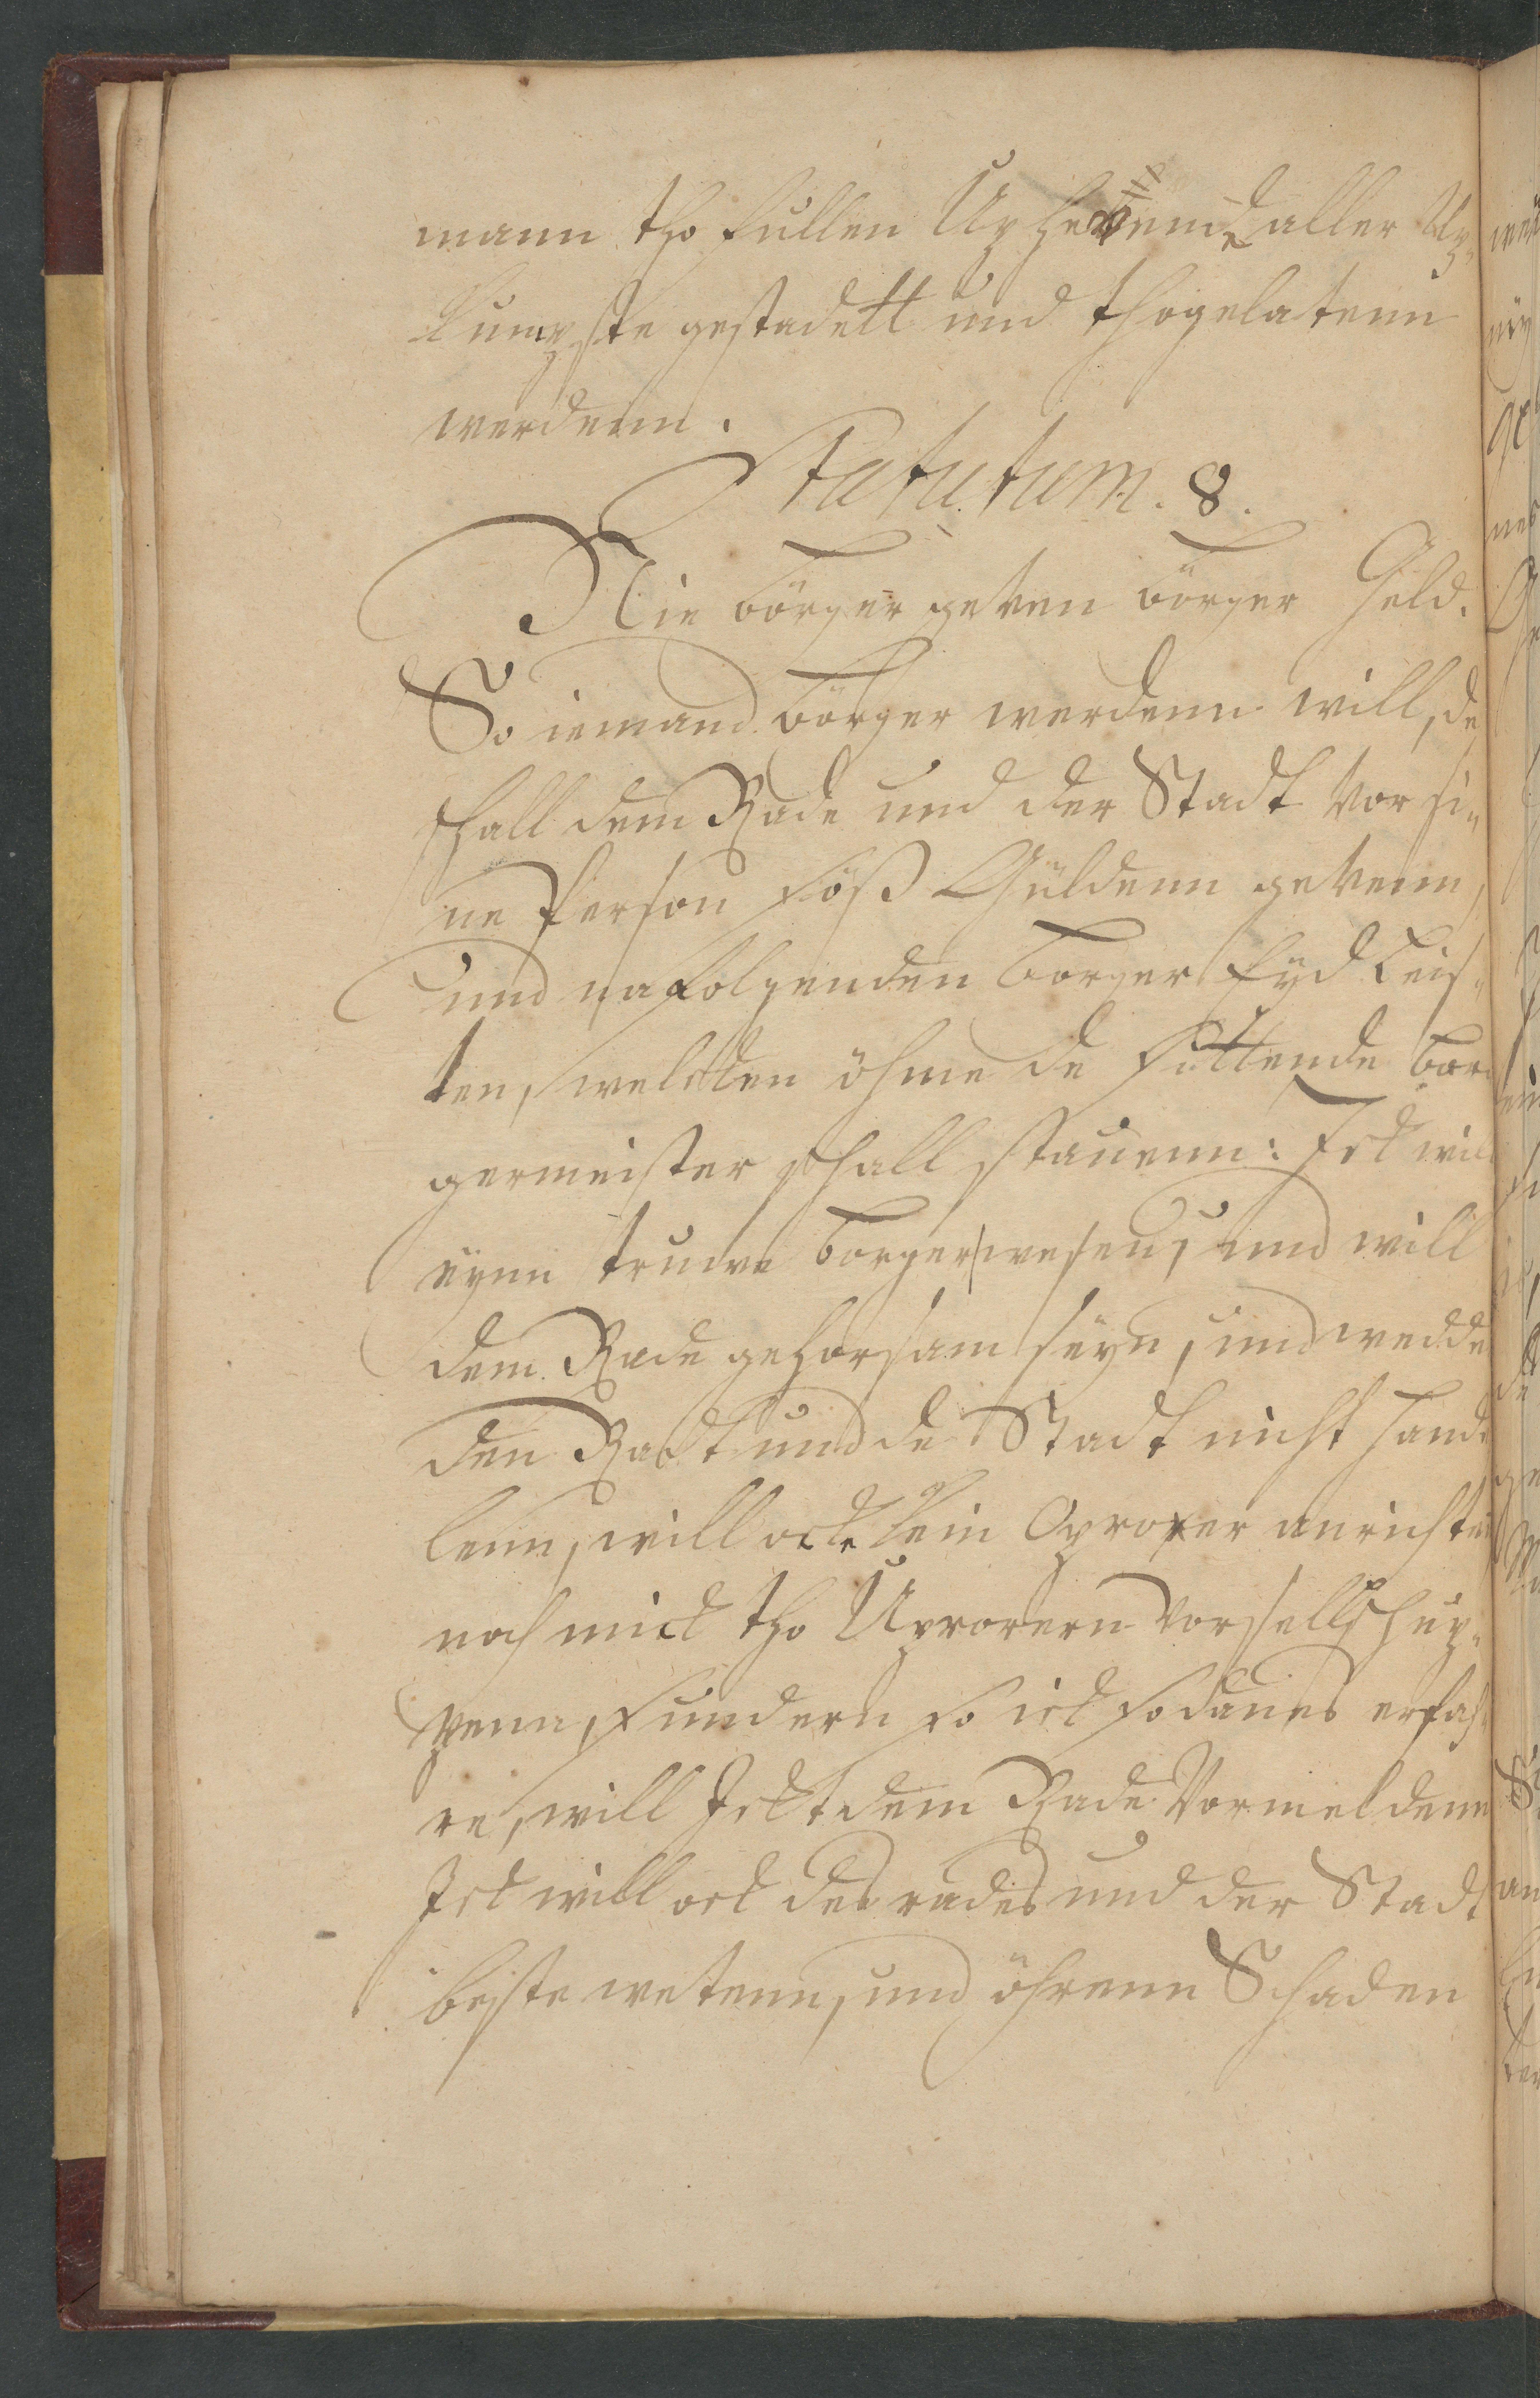 mann tho sullen Uphevend aller Up¬
kumpste gestadett und thogelatenn
werdenn.
Statutum. 8.
Nie börger geven börger Geld.
So iemand börger werdenn will, de
schall dem Rade und der Stadt vor si¬
ne Person söß Güldenn gevenn,
und nafolgenden borger Eyd leis¬
ten, welcken öhme de sittende bor
germeister schall stauenn: Ick will
eynn truwe borger wesen, und will
dem Rade gehorsam seyn, und wedde
den Radt und de Stadt nicht hande
lenn, will ock kein Oprorer anrichten
noch mick tho Uprorern vorsellschup¬
penn, sundern so ick sodanes erfah¬
re, will Ickt dem Rade vormeldenn
Ick will ock des rades und der Stadt
beste wetenn, und öhrenn Schaden